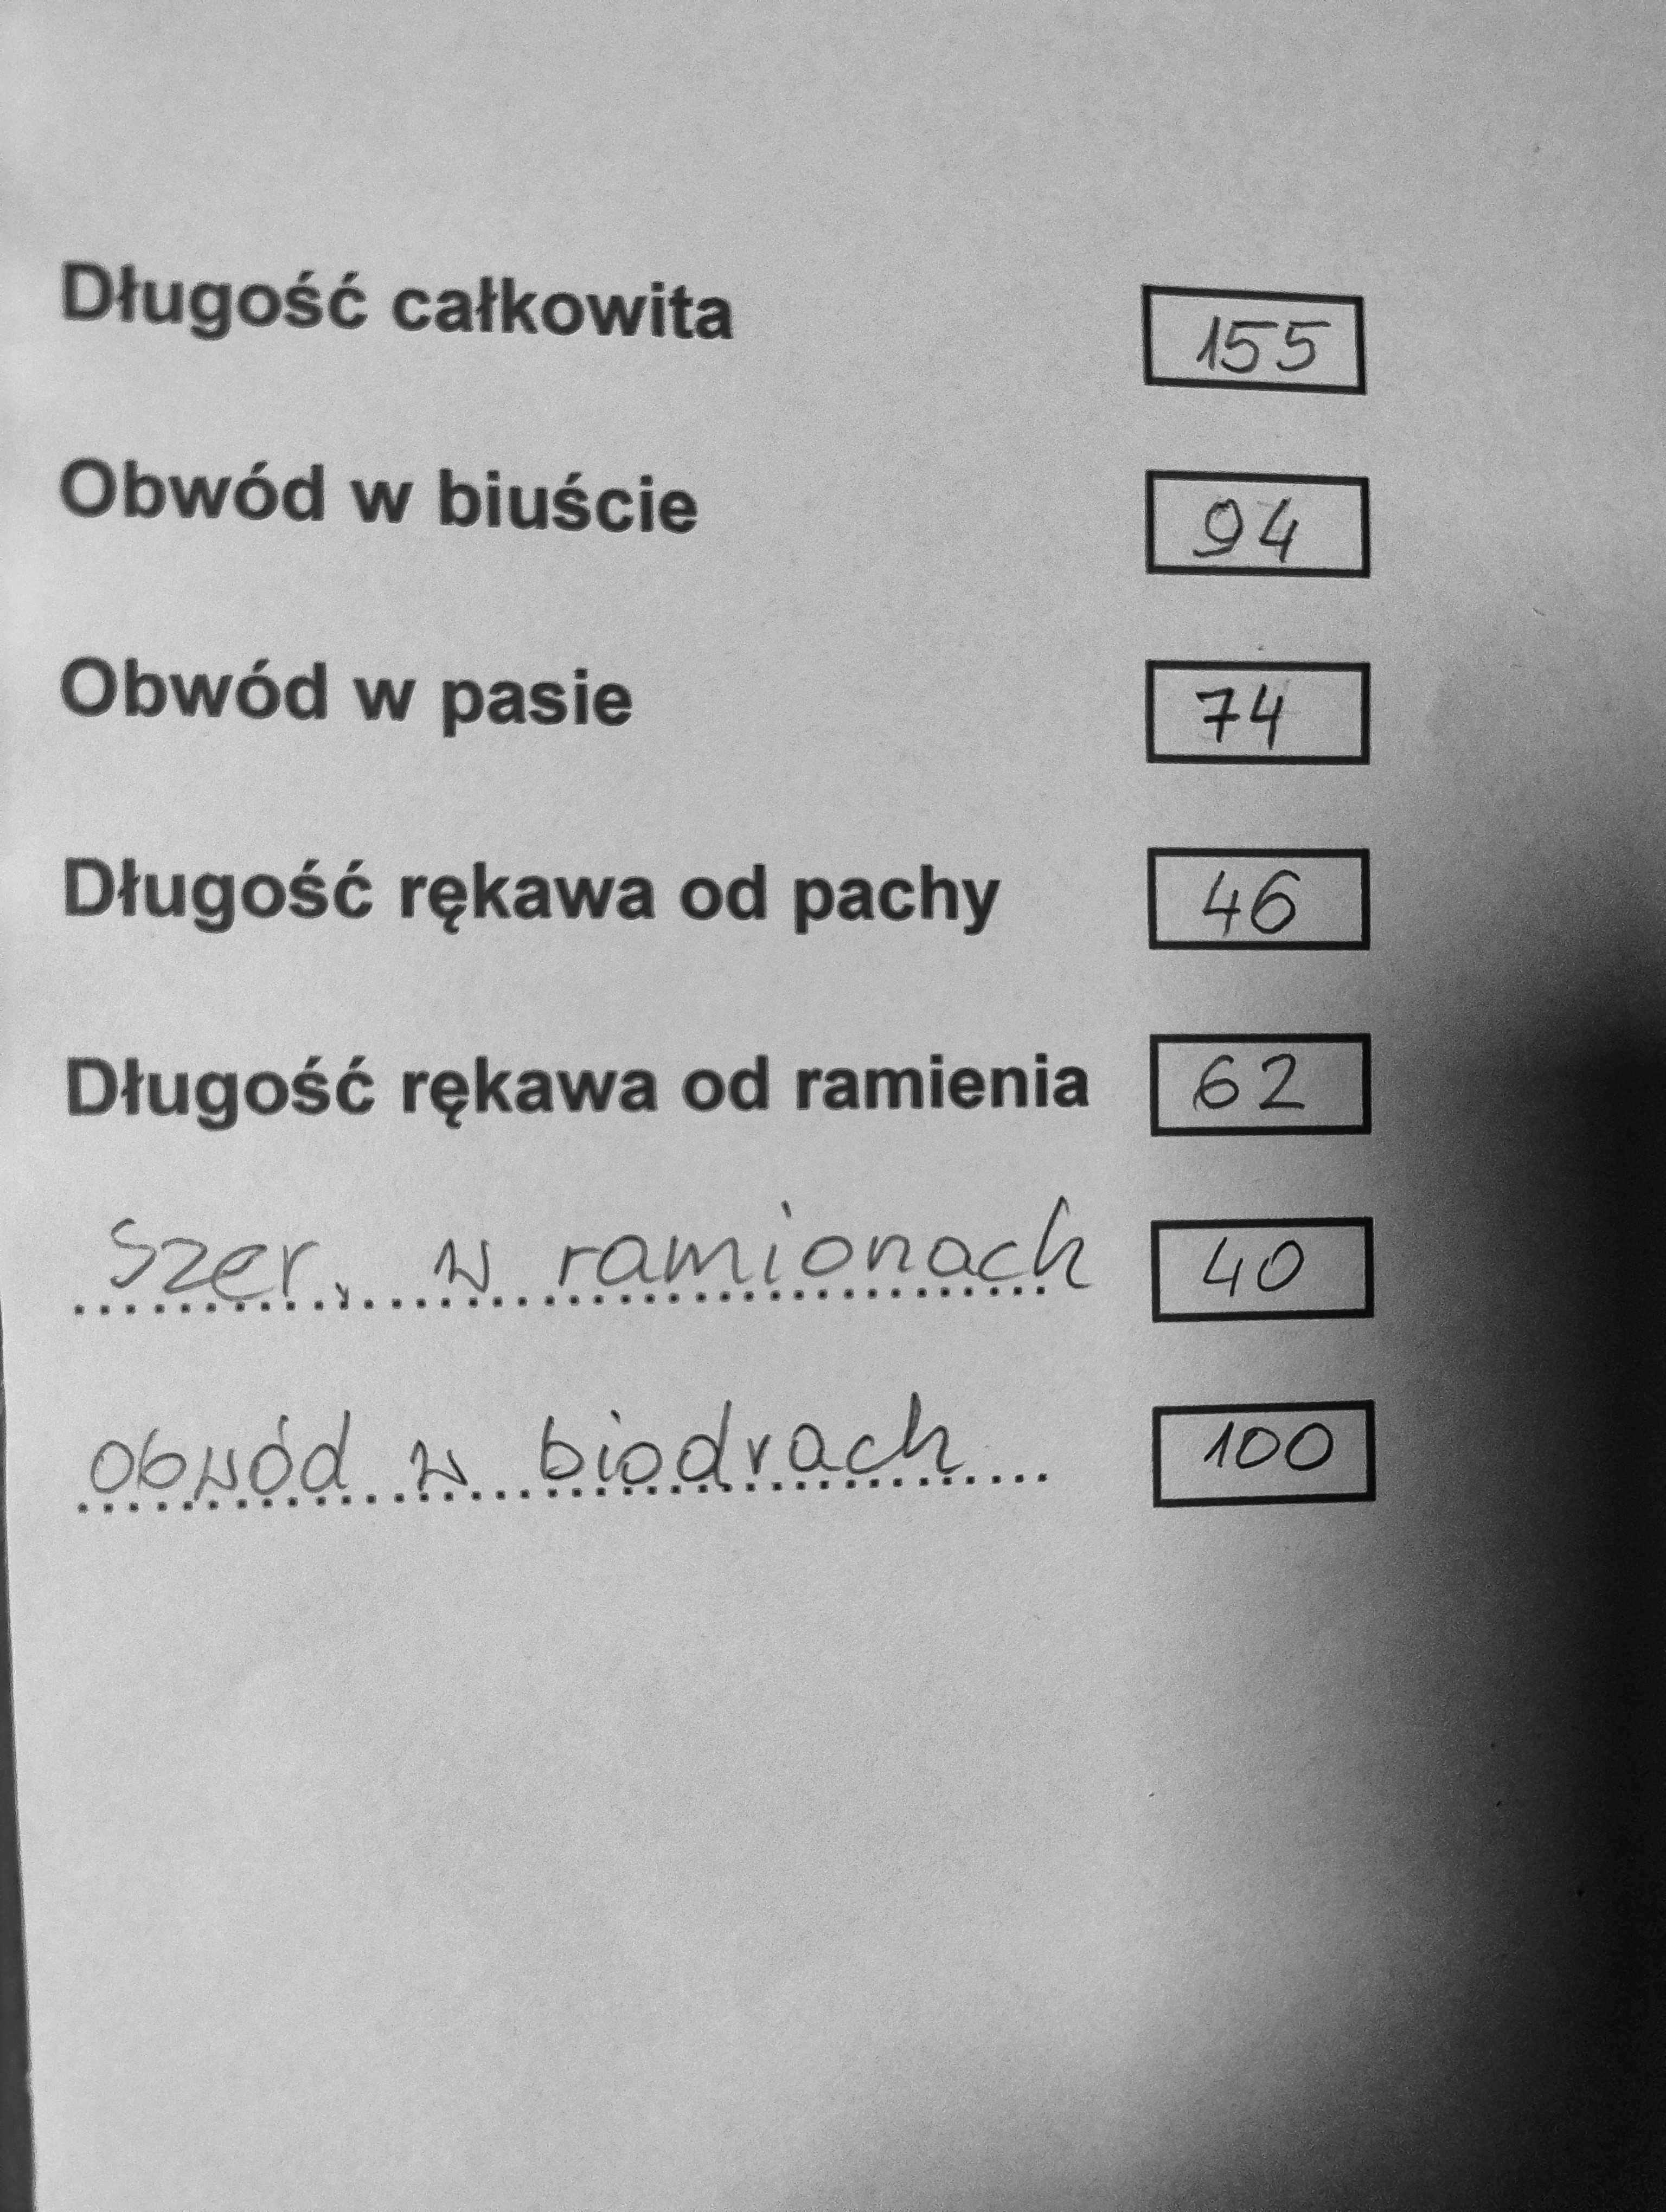 Długość całkowita 155
Obwód w biuście 94
Obwód w pasie 74
Długość rękawa od pachy 46
Długość rękawa od ramienia 62
Szer. w ramionach 40
obwód w biodrach 100